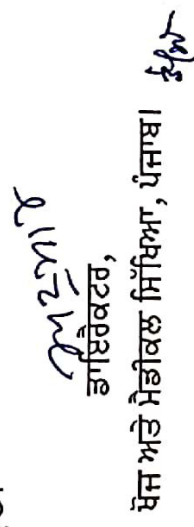 ਡਾਇਰੈਕਟਰ,
ਖੋਜ ਅਤੇ ਮੈਡੀਕਲ ਸਿੱਖਿਆ, ਪੰਜਾਬ।